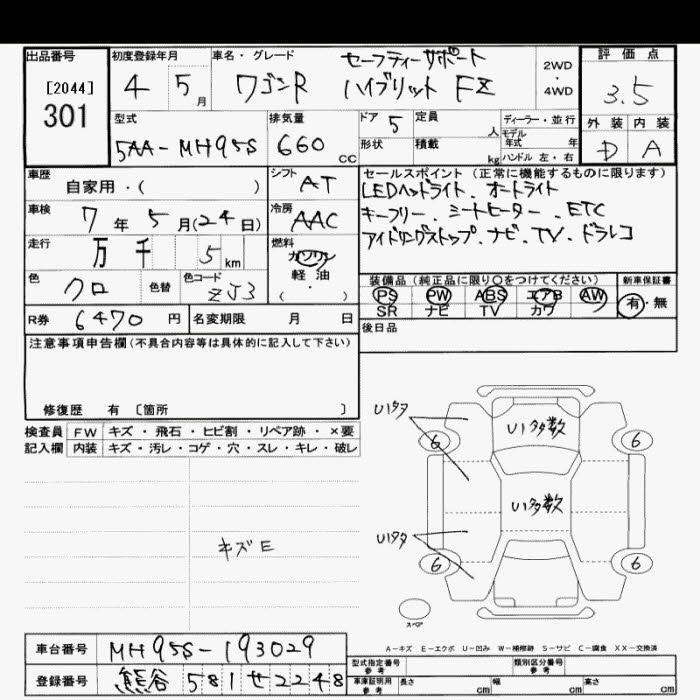 出品番号
[2044]
301
初度登録年月
4 5 月
車名・グレード
ワゴンR
セーフティーサポート
ハイブリット FZ
2WD
・
4WD
評価点
3.5
外装 内装
D A
型式
5AA-MH95S
排気量
660 CC
ドア 5
定員 人
形状
積載 kg
ディーラー・並行
モデル
年式 年
ハンドル 左・右
車歴
自家用・( )
シフト
AT
車検
7 年 5 月(24 日)
冷房
AAC
走行
万 千 5 km
燃料
ガソリン
軽 油
( ・ )
色
クロ
色替
色コード
ZJ3
R券 6470 円
名変期限 月 日
セールスポイント(正常に機能するものに限ります)
LEDヘッドライト、オートライト
キーフリー、シートヒーター、ETC
アイドリングストップ、ナビ、TV、ドラレコ
装備品(純正品に限り〇をつけてください)
PS PW ABS エアB AW
SR ナビ TV カワ
新車保証書
有・無
後日品
注意事項申告欄(不具合内容等は具体的に記入して下さい)
修復歴 有 〔箇所 〕
検査員 FW キズ・飛石・ヒビ割・リペア跡・×要
記入欄 内装 キズ・汚レ・コゲ・穴・スレ・キレ・破レ
キズE
U1タタ
U1多数
6
6
U1多数
U1タタ
6
6
スペア
A-キズ E-エクボ U-凹み W-補修跡 S-サビ C-腐食 XX-交換済
車台番号 MH95S-193029
登録番号 熊谷 581 せ 2248
型式指定番号
参考
類別区分番号
参考
車庫証明用
参考
長さ cm
幅 cm
高さ cm